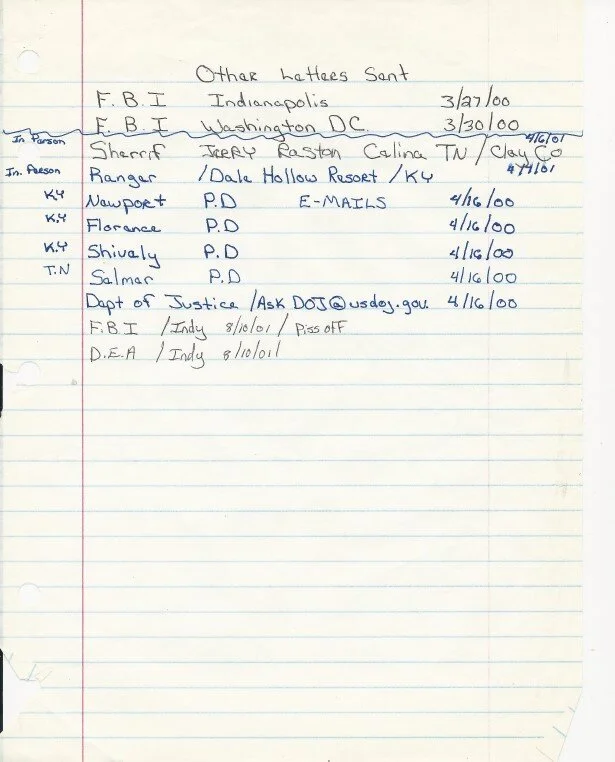 Other Letters Sent
F.B.I Indianapolis 3/27/00
F.B.I Washington DC. 3/30/00
In Person Sherrif JERRY Raston Calina TN / Clay Co 4/6/01
In. Person Ranger / Dale Hollow Resort / KY 4/4/01
KY Newport P.D E-MAILS 4/16/00
K.Y Florence P.D 4/16/00
K.Y Shively P.D 4/16/00
T.N Salmar P.D 4/16/00
Dapt of Justice / Ask DOJ@usdoj.gov. 4/16/00
F.B.I / Indy 8/10/01 / Piss off
D.E.A / Indy 8/10/01/